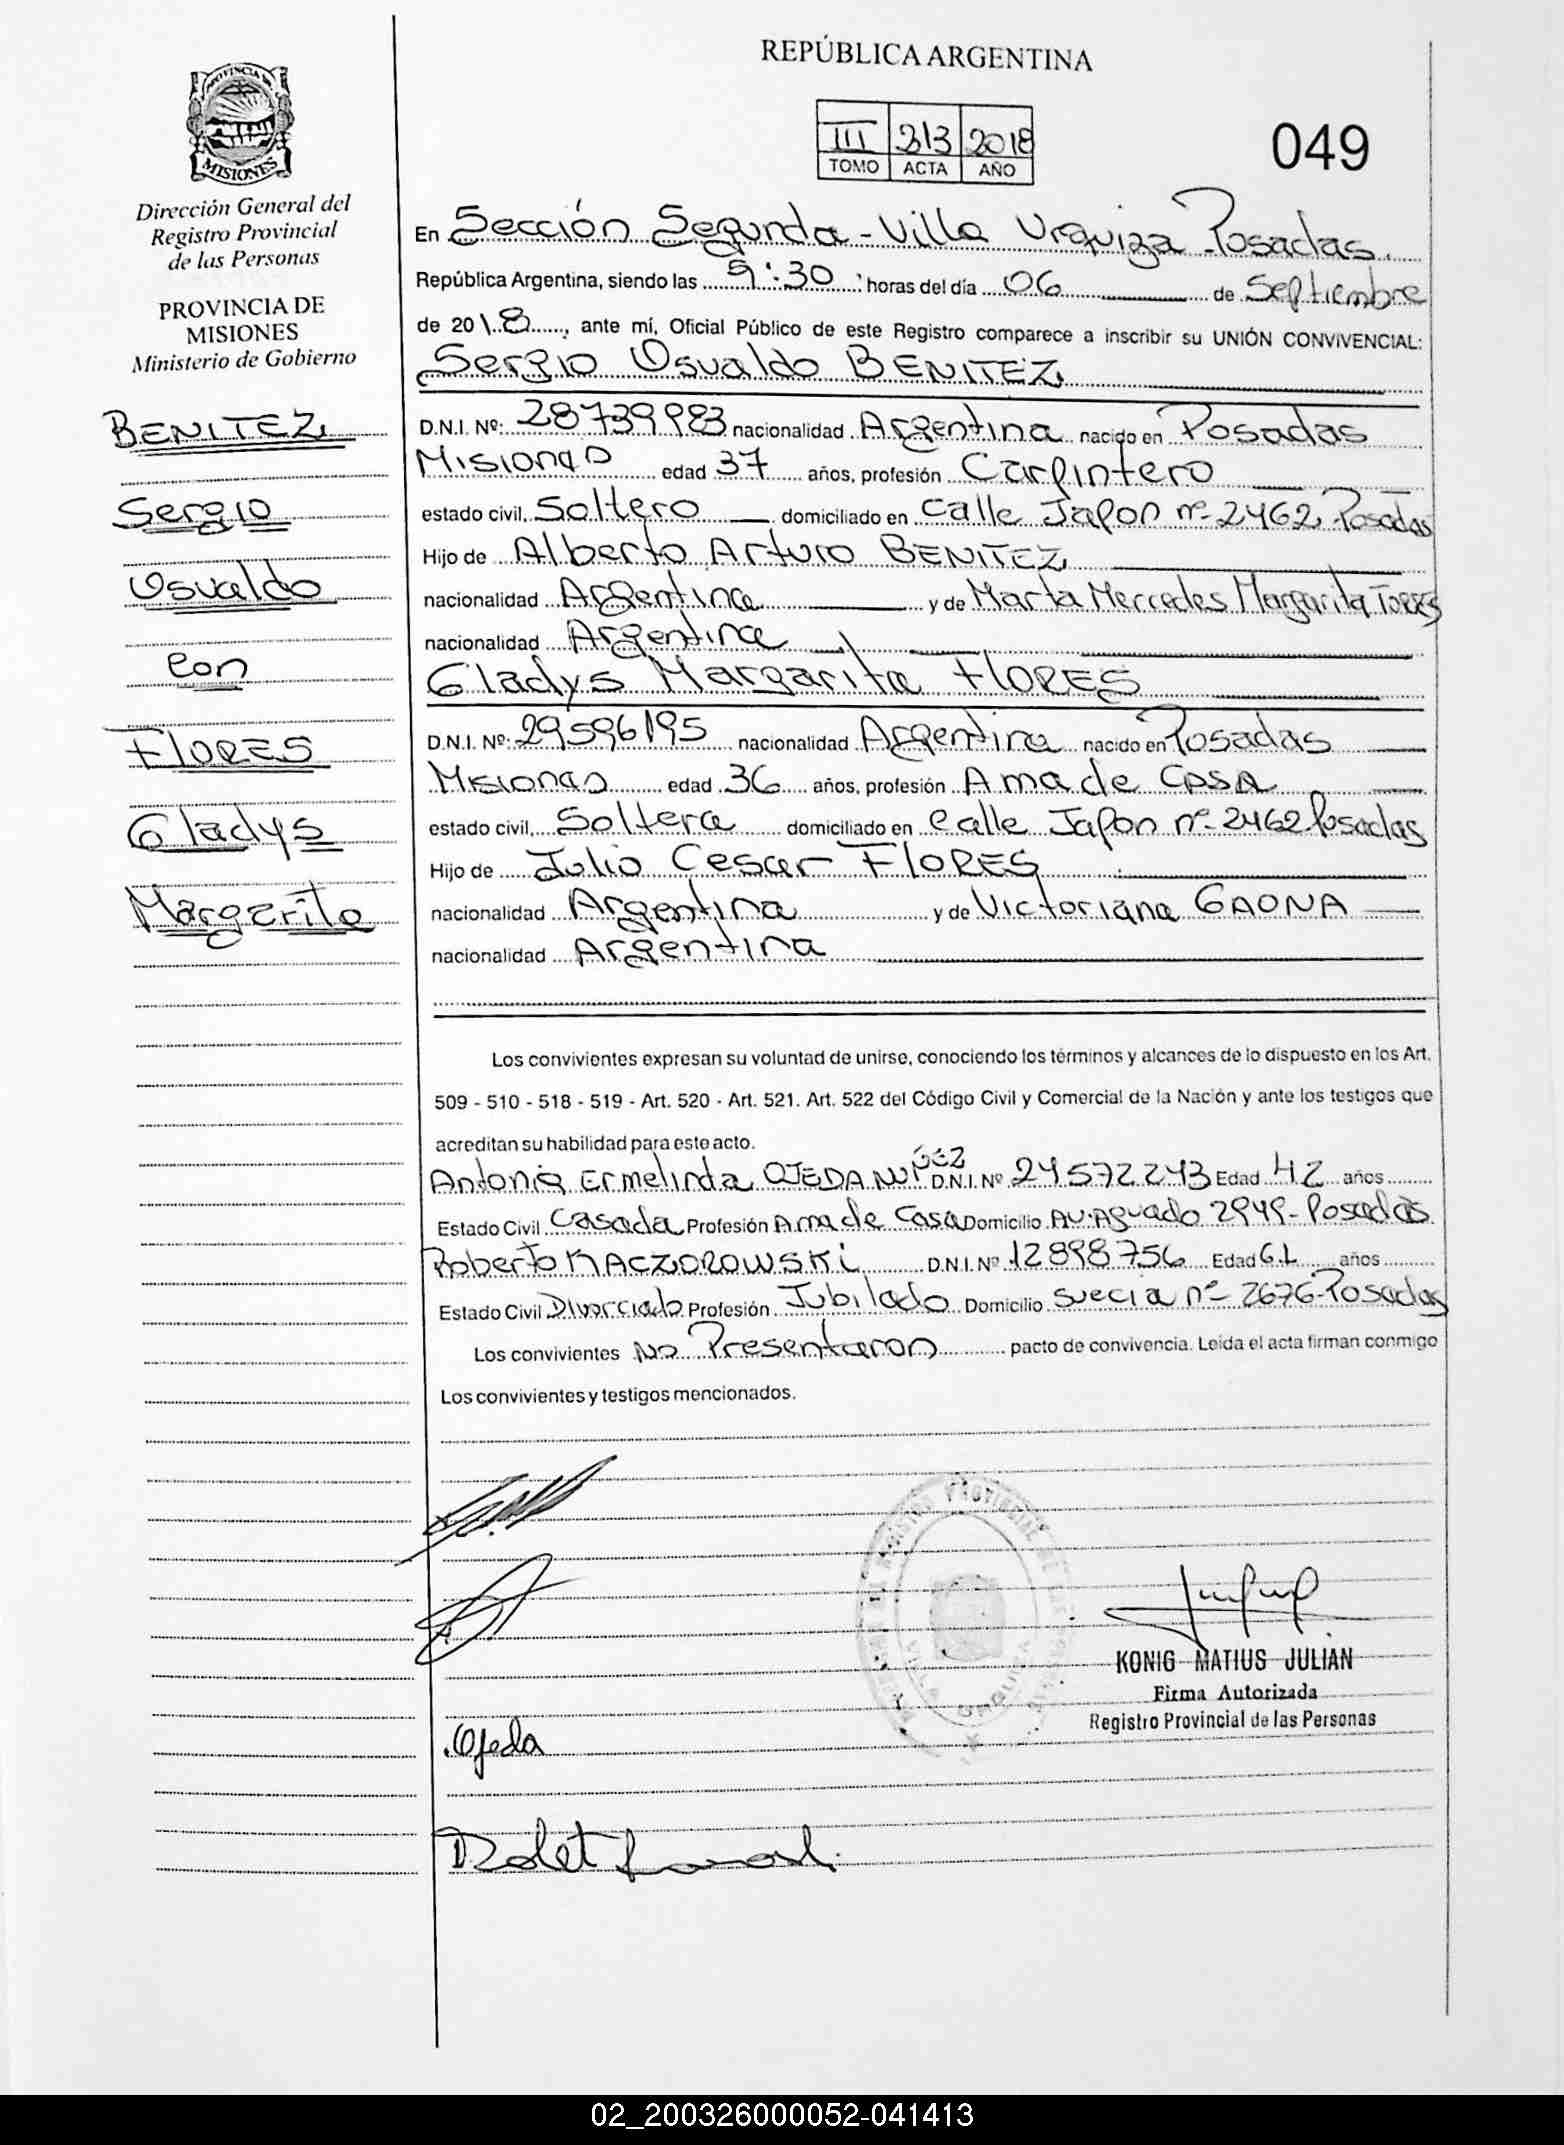 REPÚBLICA ARGENTINA
III 313 2018
TOMO ACTA AÑO
049
PROVINCIA DE
MISIONES
Dirección General del
Registro Provincial
de las Personas
PROVINCIA DE
MISIONES
Ministerio de Gobierno
BENITEZ
Sergio
Osvaldo
con
FLORES
Gladys
Margarita
En Sección Segunda - Villa Urquiza Posadas.
República Argentina, siendo las 9:30 horas del día 06 de Septiembre
de 2018, ante mí, Oficial Público de este Registro comparece a inscribir su UNIÓN CONVIVENCIAL:
Sergio Osvaldo BENITEZ
D.N.I. Nº: 28739983 nacionalidad Argentina nacido en Posadas
Misiones edad 37 años, profesión Carpintero
estado civil, Soltero domiciliado en Calle Japon nº 2462 Posadas
Hijo de Alberto Arturo BENITEZ
nacionalidad Argentina y de Marta Mercedes Margarita TORRES
nacionalidad Argentina
Gladys Margarita FLORES
D.N.I. Nº: 29596195 nacionalidad Argentina nacido en Posadas
Misiones edad 36 años, profesión Ama de Casa
estado civil, Soltera domiciliado en Calle Japon nº 2462 Posadas
Hijo de Julio Cesar FLORES
nacionalidad Argentina y de Victoriana GAONA
nacionalidad Argentina
Los convivientes expresan su voluntad de unirse, conociendo los términos y alcances de lo dispuesto en los Art.
509 - 510 - 518 - 519 - Art. 520 - Art. 521. Art. 522 del Código Civil y Comercial de la Nación y ante los testigos que
acreditan su habilidad para este acto.
Antonia Ermelinda OJEDA NUÑEZ D.N.I. Nº 24572243 Edad 42 años
Estado Civil Casada Profesión Ama de Casa Domicilio Av. Aguado 2949 - Posadas
Roberto KACZOROWSKI D.N.I. Nº 12898756 Edad 61 años
Estado Civil Divorciado Profesión Jubilado Domicilio Suecia nº 2676 - Posadas
Los convivientes No Presentaron pacto de convivencia. Leída el acta firman conmigo
Los convivientes y testigos mencionados.
KONIG MATIUS JULIAN
Firma Autorizada
Registro Provincial de las Personas
Ojeda
02_200326000052-041413